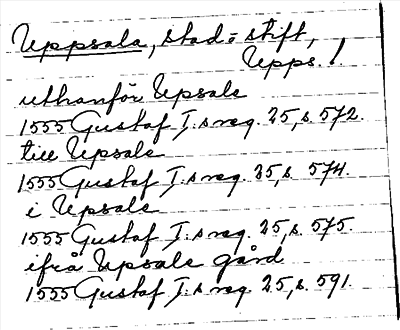 Uppsala, stad = stift,
Upps. l.
uthanför Upsale
1555 Gustaf I:s reg. 25, s. 572.
till Upsale
1555 Gustaf I:s reg. 25, s. 574.
i Upsale
1555 Gustaf I:s reg. 25, s. 575.
ifrå Upsale gård
1555 Gustaf I:s reg. 25, s. 591.